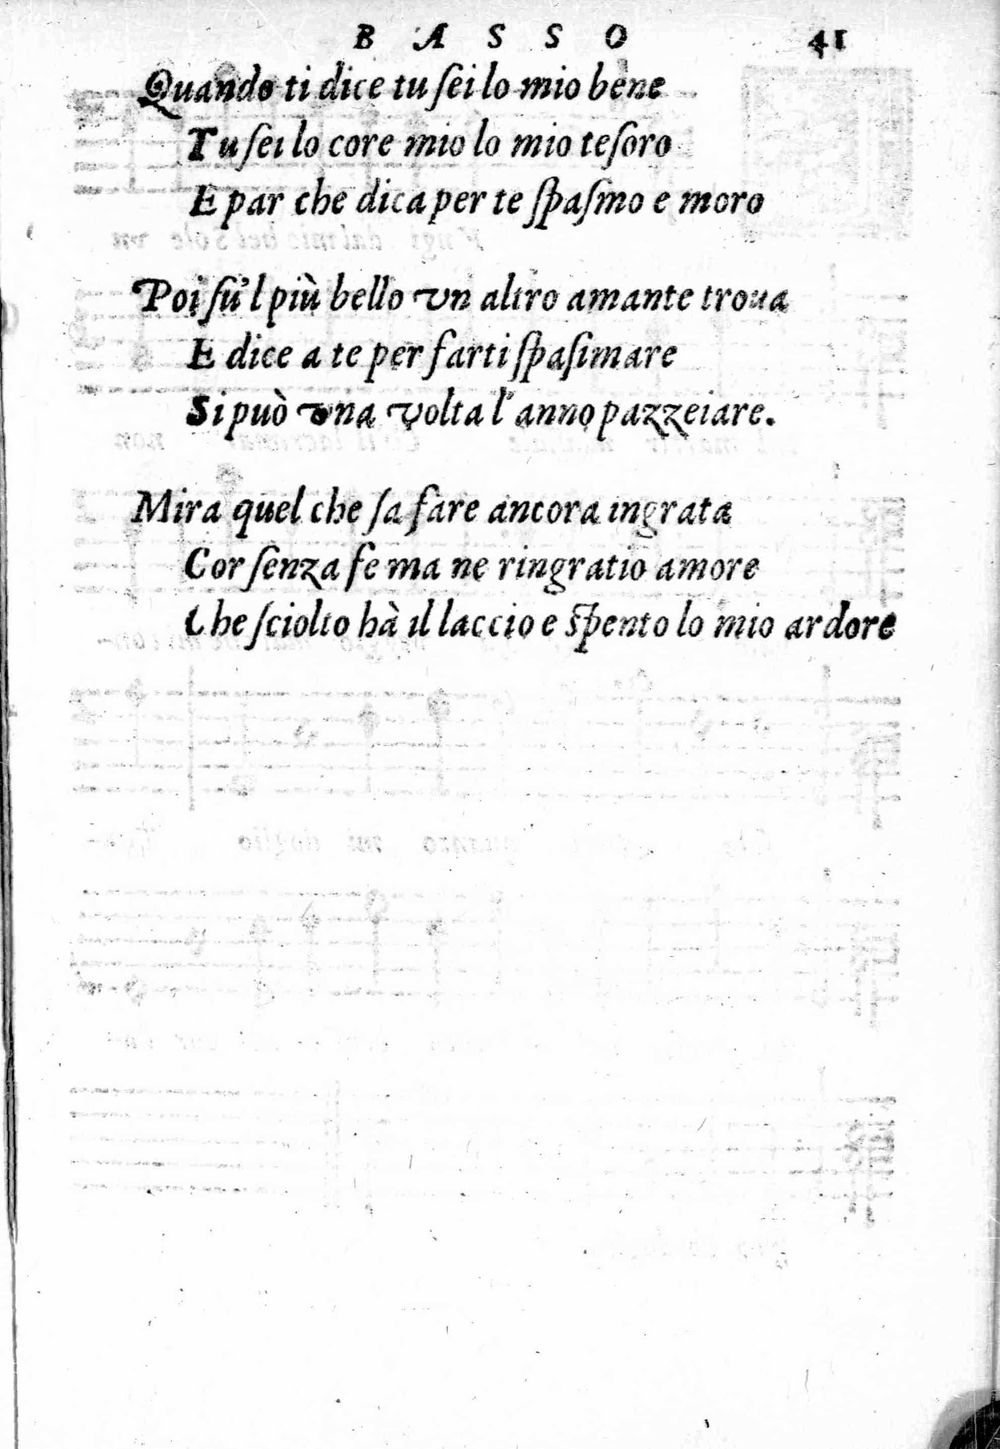 BASSO 41
Quando ti dice tu ſei lo mio bene
Tu ſei lo core mio lo mio teſoro
E par che dica per te ſpaſmo e moro
Poi ſu'l più bello vn altro amante troua
E dice a te per farti ſpaſimare
Si può vna volta l'anno pazzeiare.
Mira quel che ſa fare ancora ingrata
Cor ſenza fe ma ne ringratio amore
Che ſciolto hà il laccio e ſpento lo mio ardore